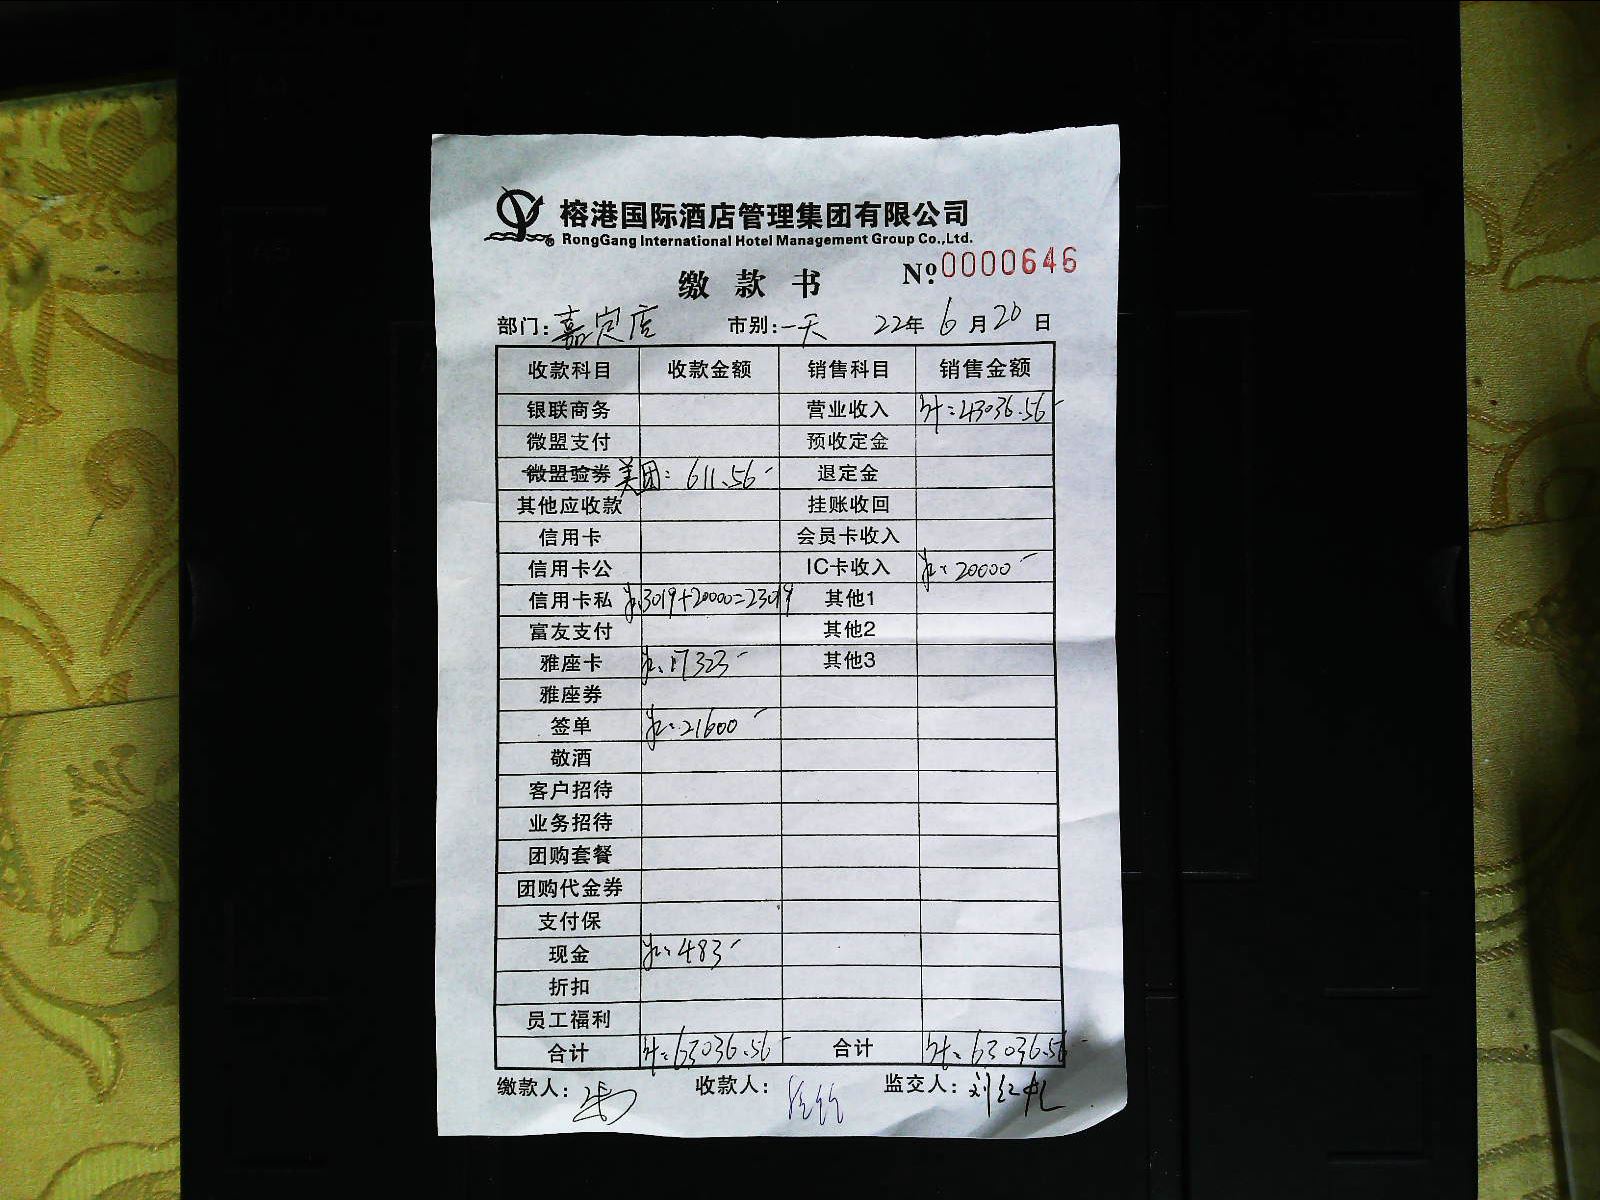 榕港国际酒店管理集团有限公司
RongGang International Hotel Management Group Co.,Ltd.
缴款书 No.0000646
部门：嘉定店 市别：一天 22年 6月20日
收款科目 收款金额 销售科目 销售金额
银联商务 营业收入 计：43036.56
微盟支付 预收定金
微盟验券 美团：611.56 退定金
其他应收款 挂账收回
信用卡 会员卡收入
信用卡公 IC卡收入 20000
信用卡私 3019+20000=23019 其他1
富友支付 其他2
雅座卡 17323 其他3
雅座券
签单 21600
敬酒
客户招待
业务招待
团购套餐
团购代金券
支付保
现金 483
折扣
员工福利
合计 计：63036.56 合计 计：63036.56
缴款人： 收款人： 监交人：